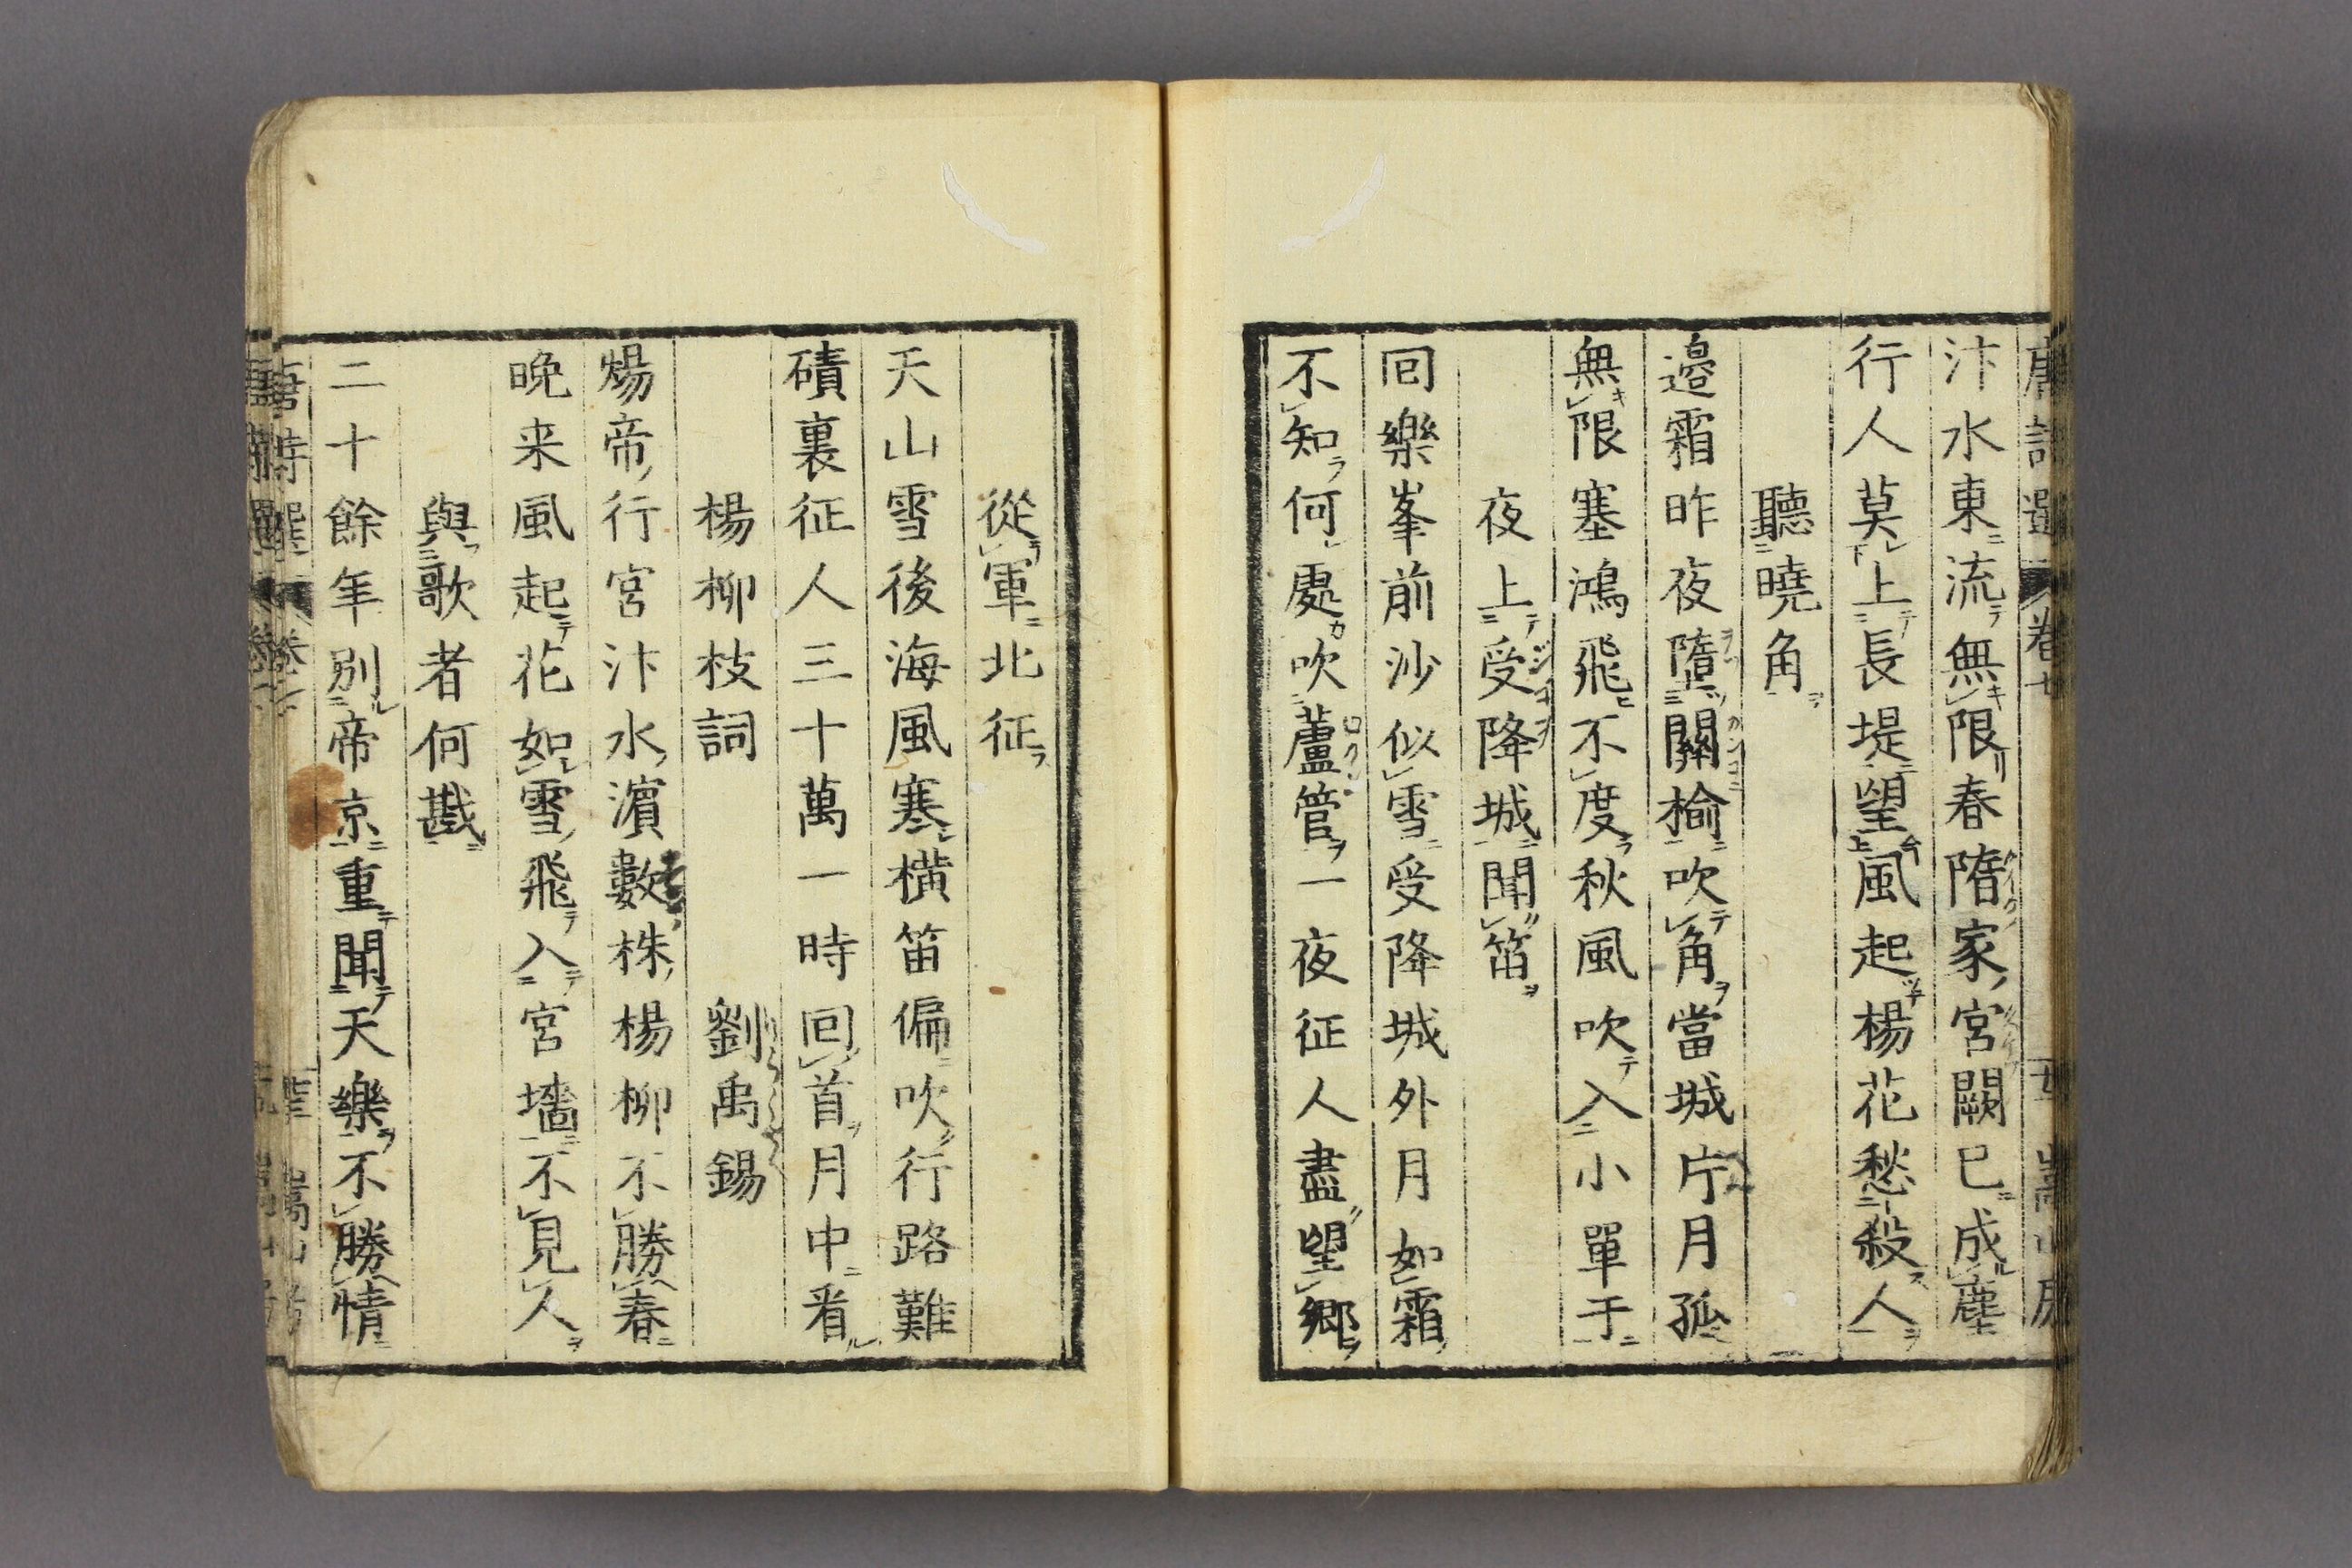 汴水東流無限春隋家宮闕已成塵
行人莫上長堤望風起楊花愁殺人
聽曉角
邉霜昨夜墮關榆吹角當城片月孤
無限塞鴻飛不度秋風吹入小單于
夜上受降城聞笛
回樂峯前沙似雪受降城外月如霜
不知何處吹蘆管一夜征人盡望鄉
從軍北征
天山雪後海風寒橫笛偏吹行路難
磧裏征人三十萬一時回首月中看
楊柳枝詞 劉禹錫
煬帝行宮汴水濵數株楊柳不勝春
晚来風起花如雪飛入宮墻不見人
與歌者何戡
二十餘年別帝京重聞天樂不勝情